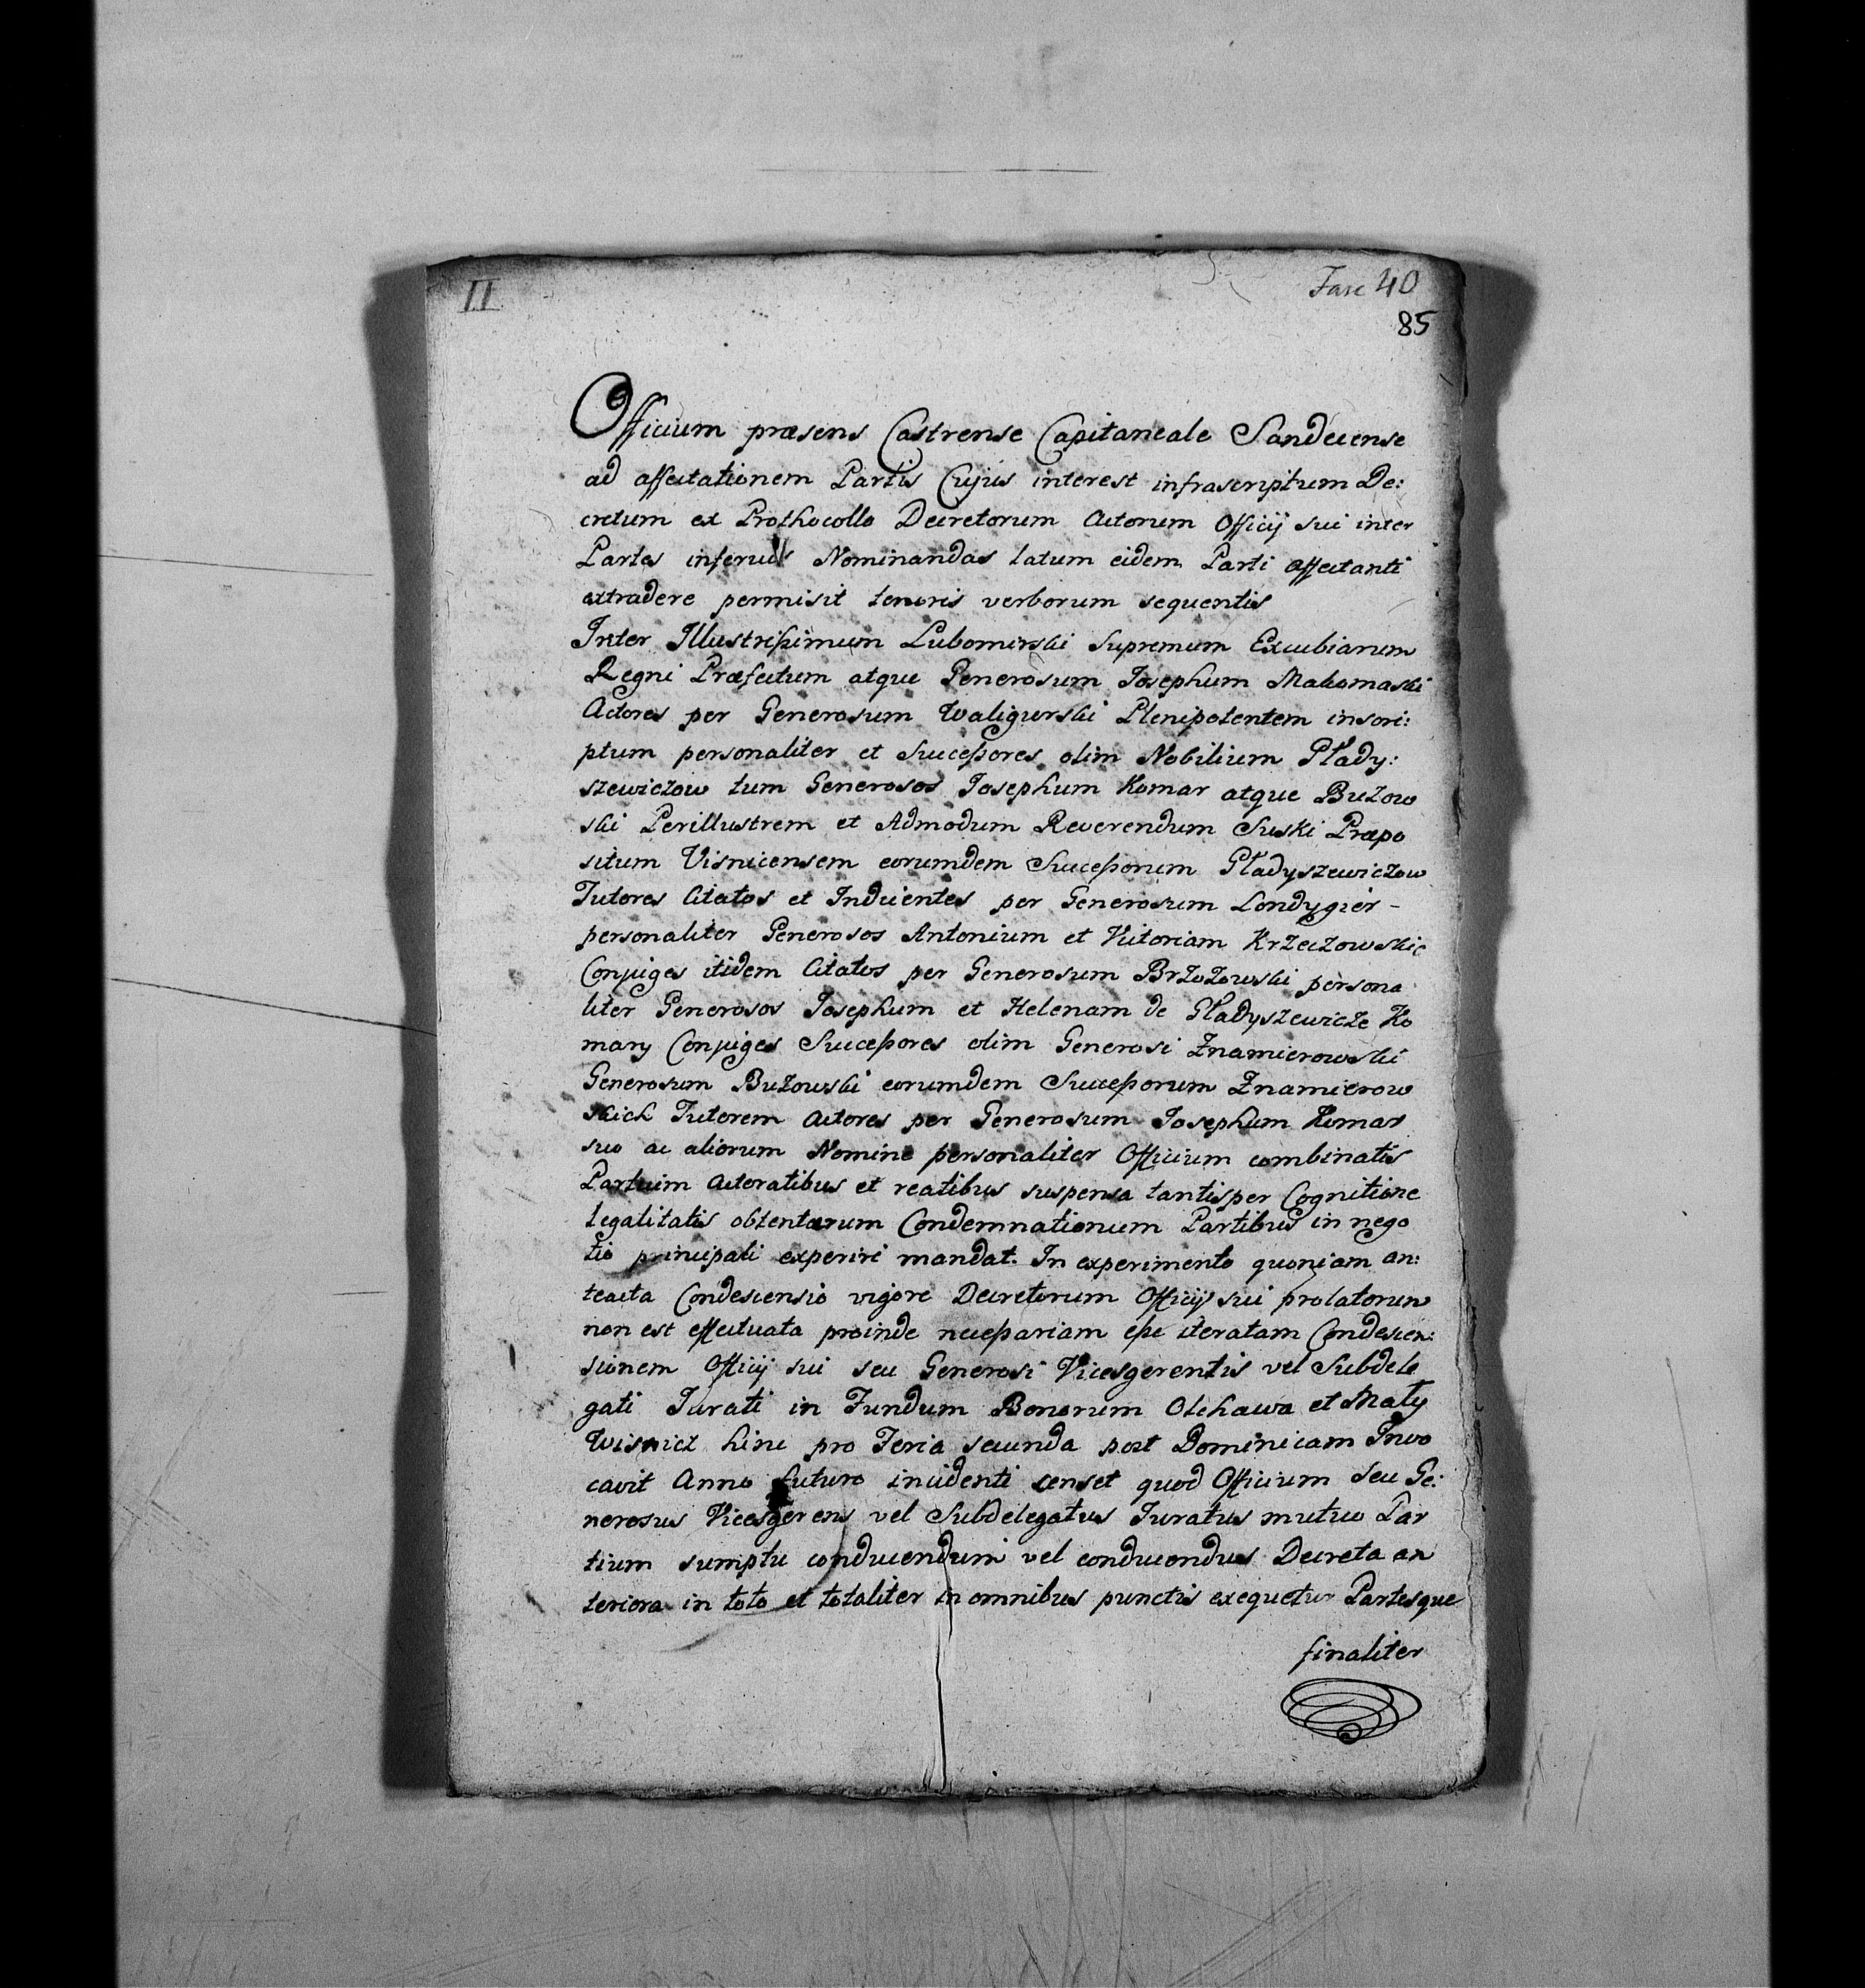 II
Fasc 40
85
Officium præsens Castrense Capitaneale Sandecense
ad affectationem Partis Cujus interest infrascriptum De:
cretum ex Prothocollo Decretorum Actorum Officij sui inter
Partes inferius Nominandas latum eidem Parti affectanti
extradere permisit tenoris verborum sequentis
Inter Illustrissimum Lubomirski Supremum Excubiarum
Regni Præfectum atque Generosum Josephum Makomaski
Actores per Generosum Waligurski Plenipotentem inscri:
ptum personaliter et Successores olim Nobilium Głady:
szewiczow tum Generosos Josephum Komar atque Buzow
ski Perillustrem et Admodum Reverendum Suski Præpo
situm Visnicensem eorumdem Successorum Gładyszewiczow
Tutores Citatos et Inducentes per Generosum Londygier -
personaliter Generosos Antonium et Victoriam Krzeczowskie
Conjuges itidem Citatos per Generosum Brzozowski persona
liter Generosos Josephum et Helenam de Gładyszewicze Ko
mary Conjuges Successores olim Generosi Znamierowski
Generosum Buzowski eorumdem Successorum Znamierow
skich Tutorem Actores per Generosum Josephum Komar
suo ac aliorum Nomine personaliter Officium combinatis
Partium Actoratibus et reatibus suspensa tantisper Cognitione
legalitatis obtentarum Condemnationum Partibus in nego
tio principali experiri mandat. In experimento quoniam an:
teacta Condescensio vigore Decretorum Officij sui prolatorum
non est effectuata proinde necessariam esse iteratam Condescen:
sionem Officij sui seu Generosi Vicesgerentis vel Subdele
gati Jurati in Fundum Bonorum Olchawa et Mały
Wisnicz hinc pro Feria secunda post Dominicam Invo
cavit Anno futuro incidenti censet quod Officium seu Ge:
nerosus Vicesgerens vel Subdelegatus Juratus mutuo Par
tium sumptu conducendum vel conducendus Decreta an
teriora in toto et totaliter in omnibus punctis exequetur Partesque
finaliter